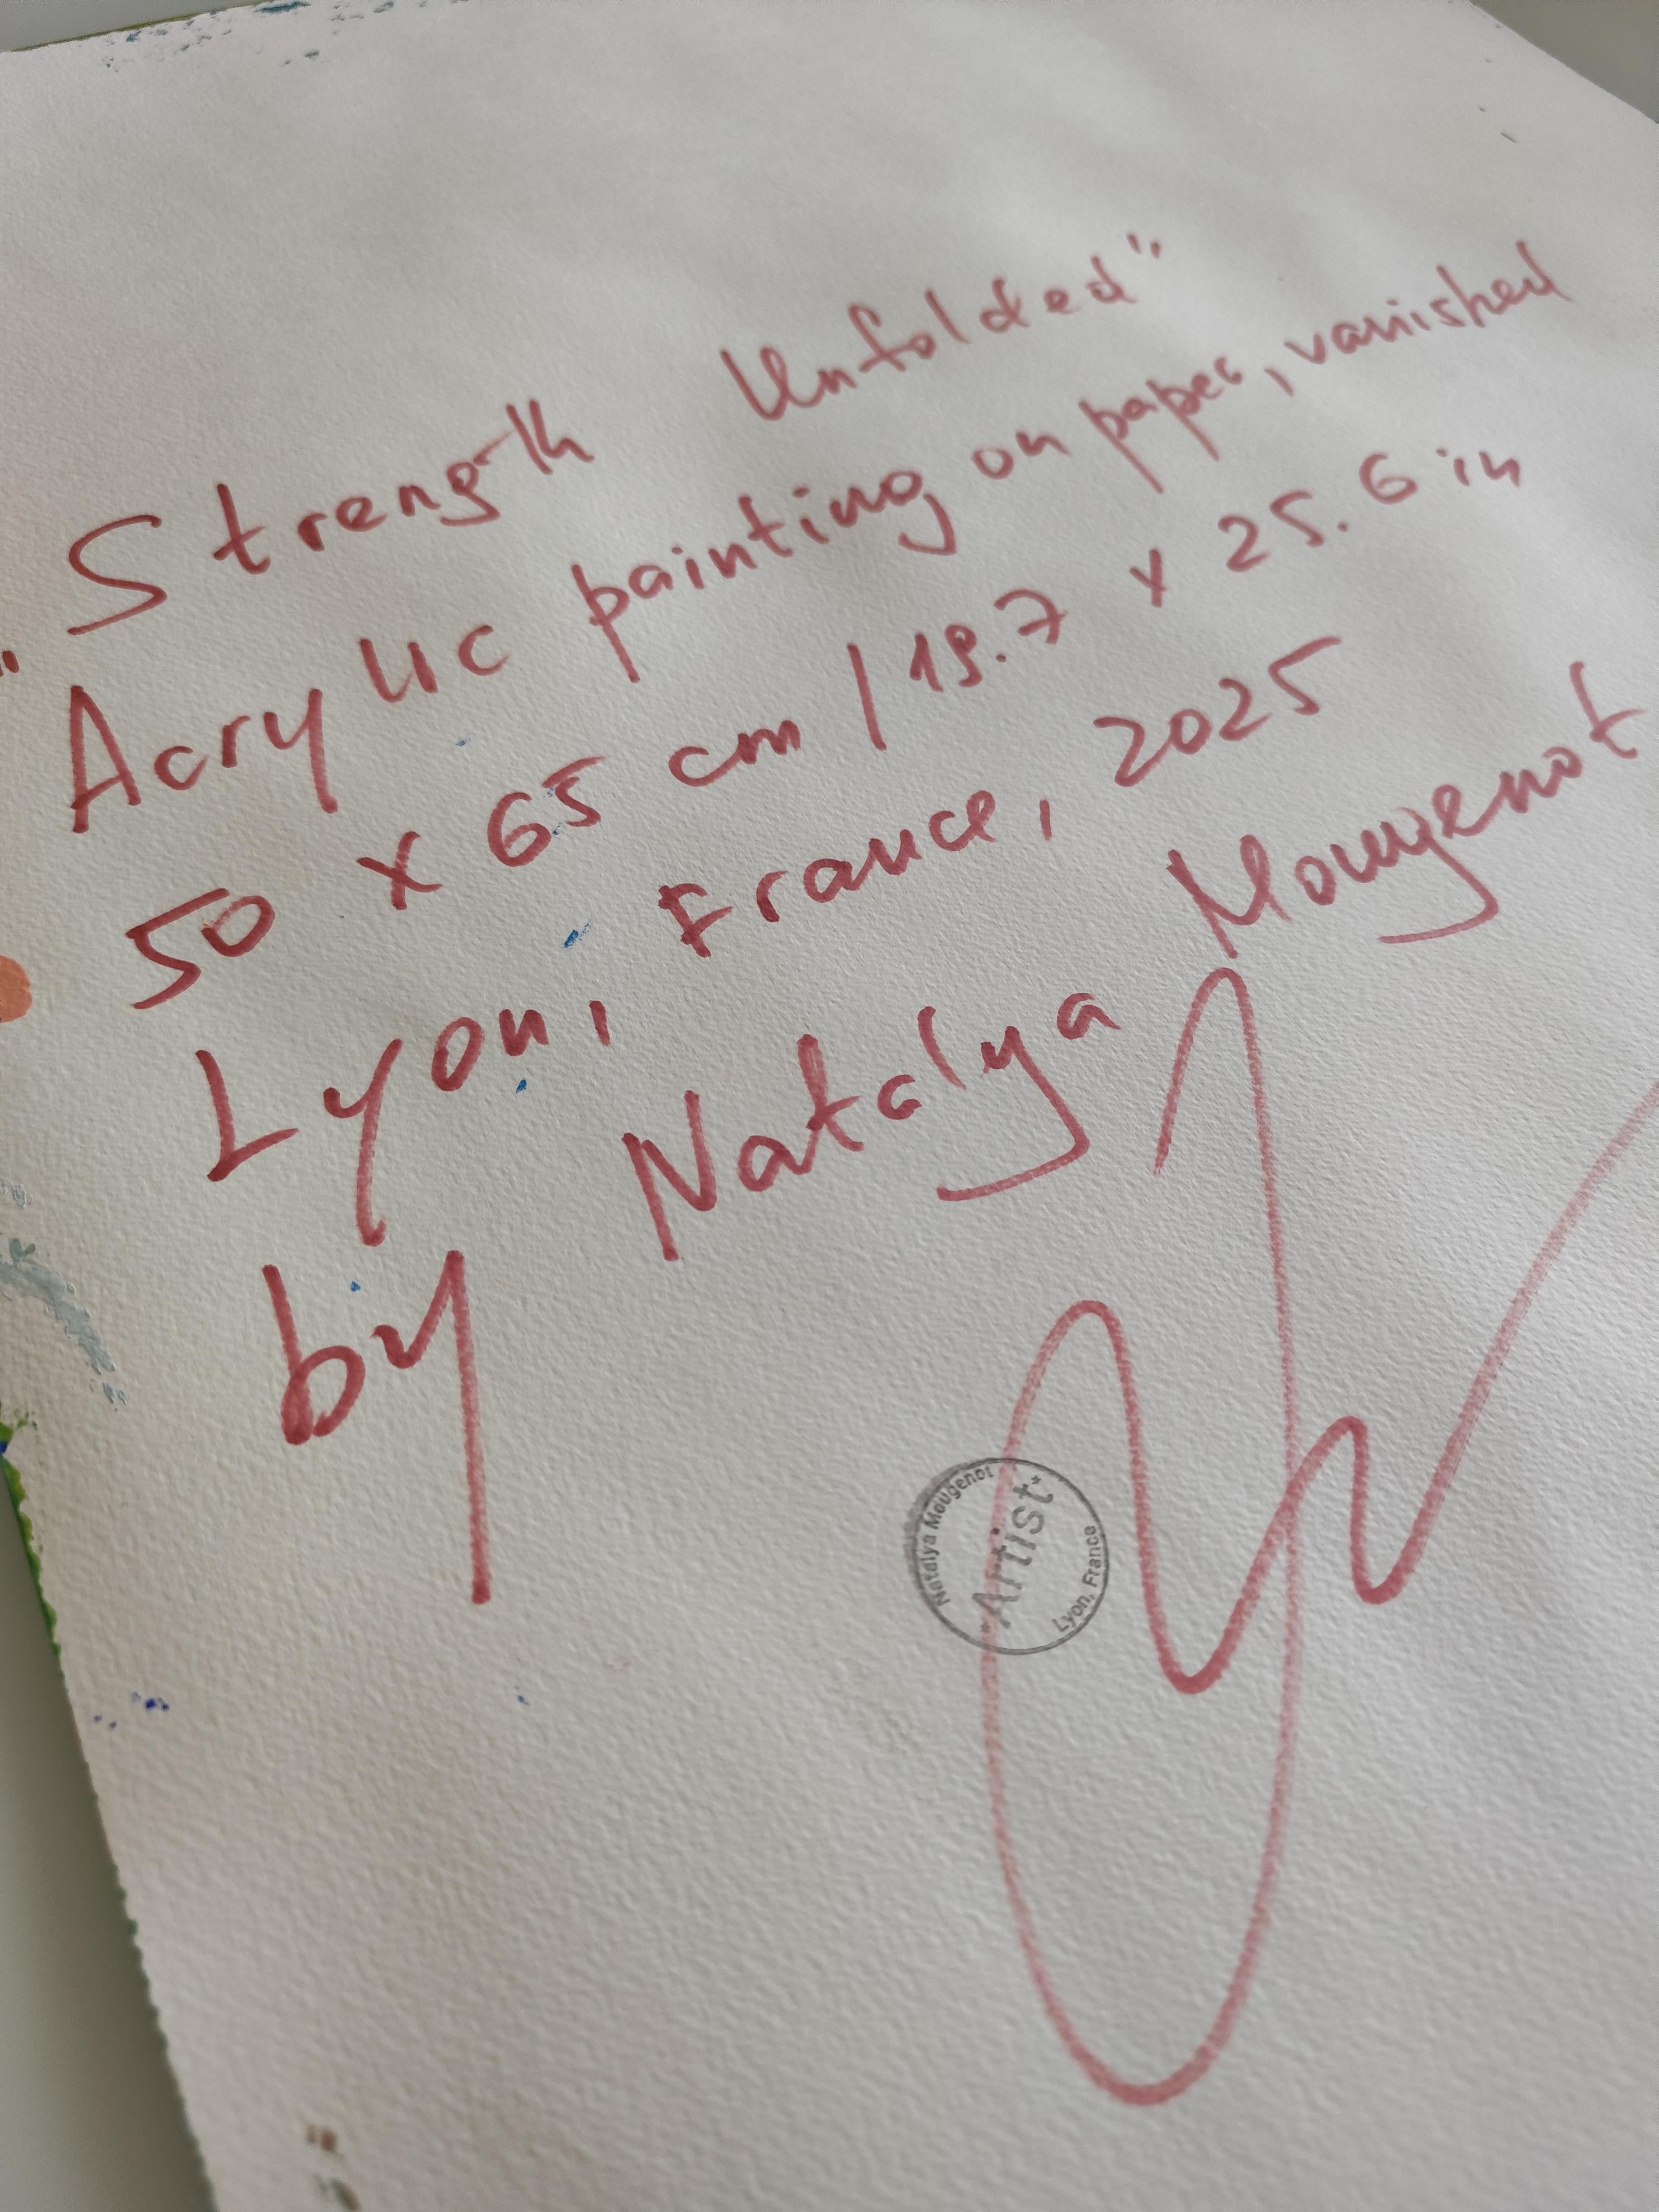 "Strength Unfolded"
Acrylic painting on paper, vanished
50 x 65 cm | 19.7 x 25.6 in
Lyon, France, 2025
by Natalya Mougenot
Natalya Mougenot
*Artist*
Lyon, France